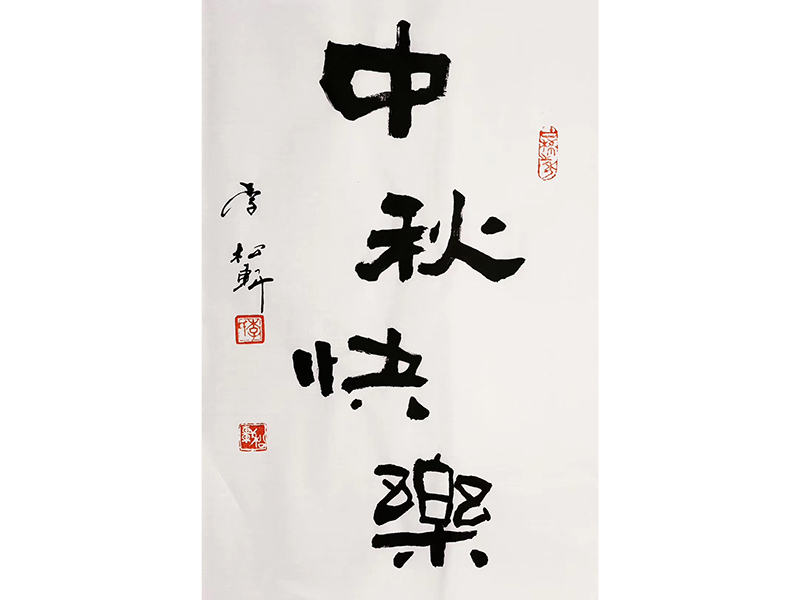 中秋快樂
李松軒